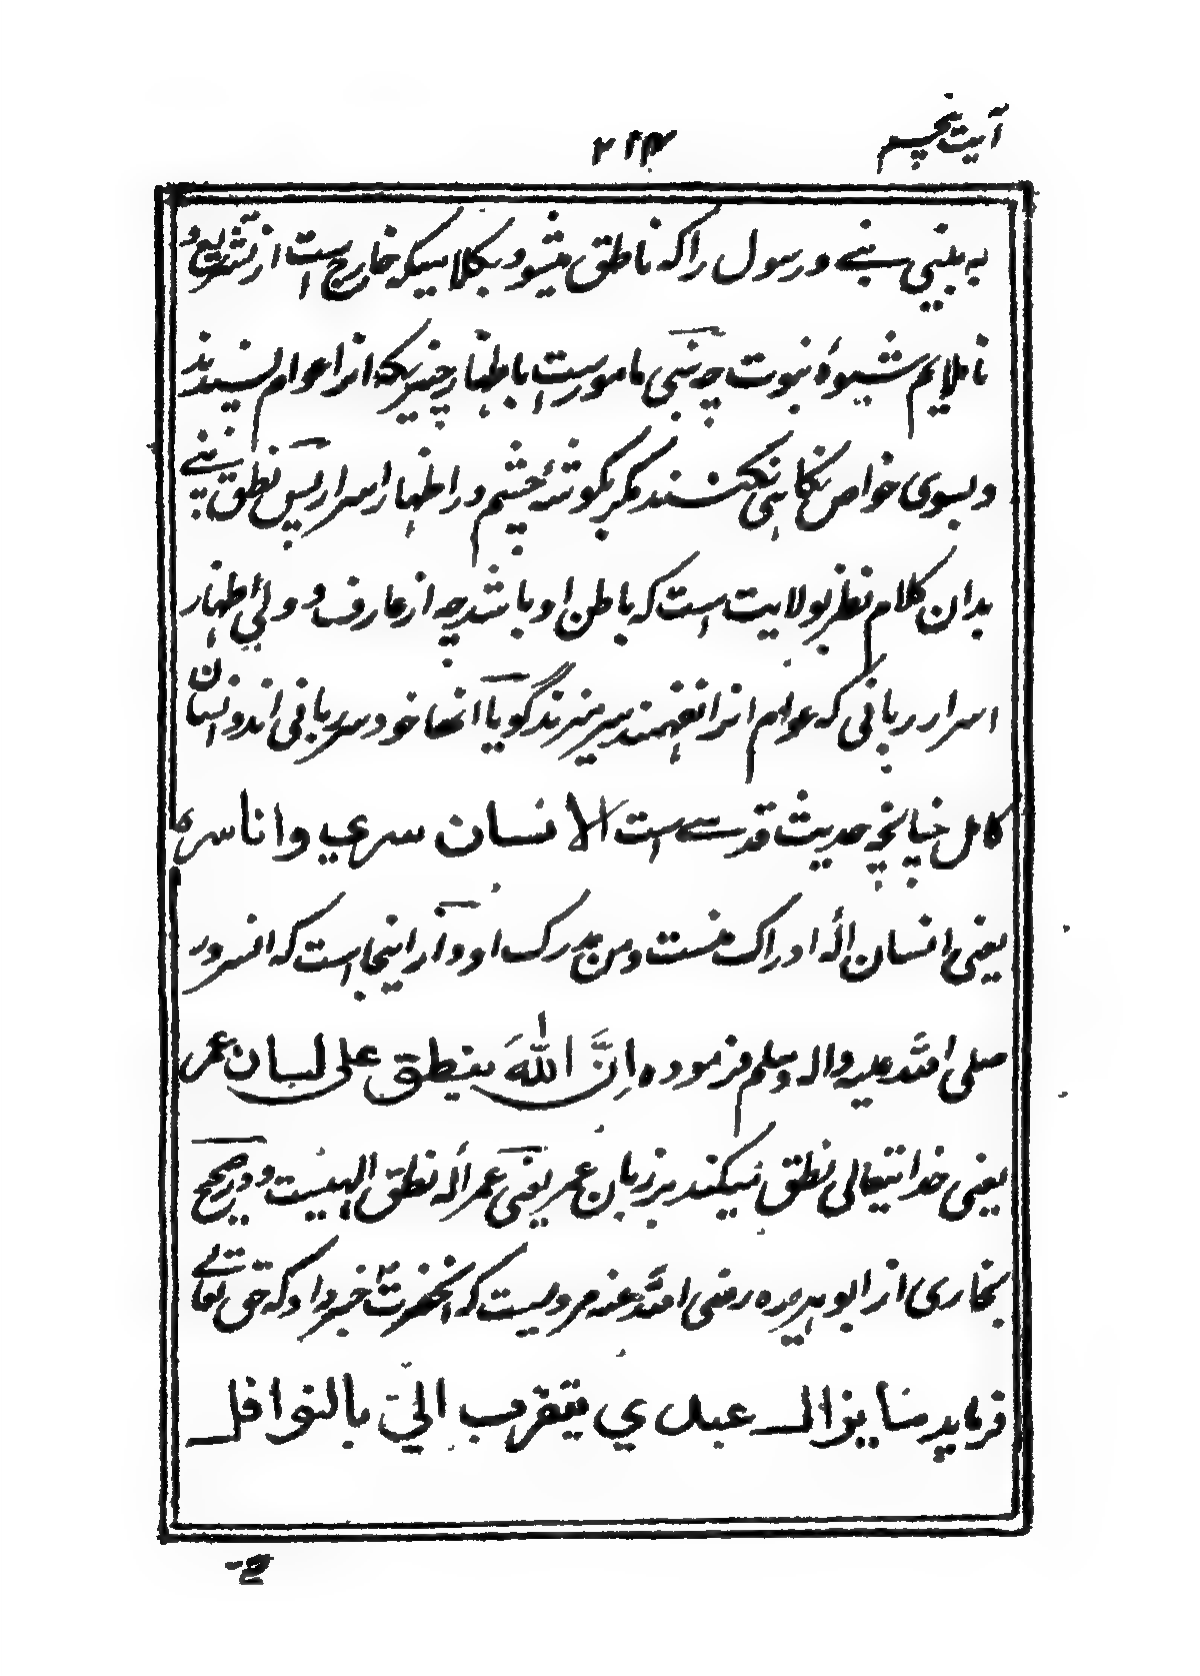 آیت پنجم
۲۱۴
به بینی نبے و رسول را که ناطق میشود بکلامیکه خارج است از تشریع و
ناملایم شیوهٔ نبوت چه نبی مامورست باظهار چیزیکه انرا عوام پسندند
و بسوی خواص نگاهی نکنند مگر بگوشهٔ چشم در اظهار اسرار پس نطق نبے
بدان کلام نظر بولایت است که باطن او باشد چه از عارف و ولی اظهار
اسرار ربانی که عوام انرا نفهمند سر میزند گویا انها خود سر ربانی اند و انسان
کامل چنانچه حدیث قدسے است الانسان سري وانا سره
یعنی انسان اله ادراک منست و من مدرک او و از اینجا است که انسرور
صلی الله علیه واله وسلم فرموده اِنَّ اللّٰهَ ینطق علی لسان عمر
یعنی خدایتعالی نطق میکند بر زبان عمر یعنی عمر اله نطق الهیست و در صحیح
بخاری از ابو هریره رضی الله عنه مرویست که انحضرت خبر داد که حق تعالے
فرماید ما یزال عبدي یتقرب الي بالنوافل